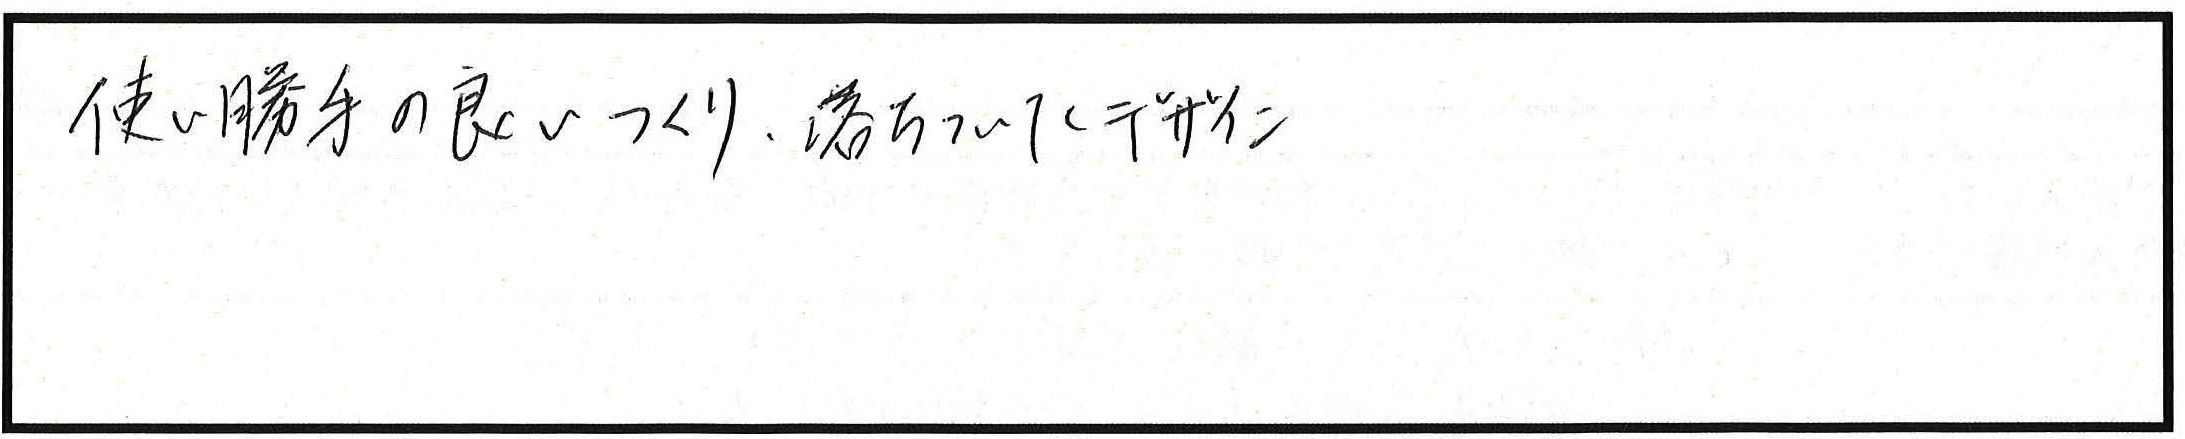 使い勝手の良いつくり、落ちついたデザイン